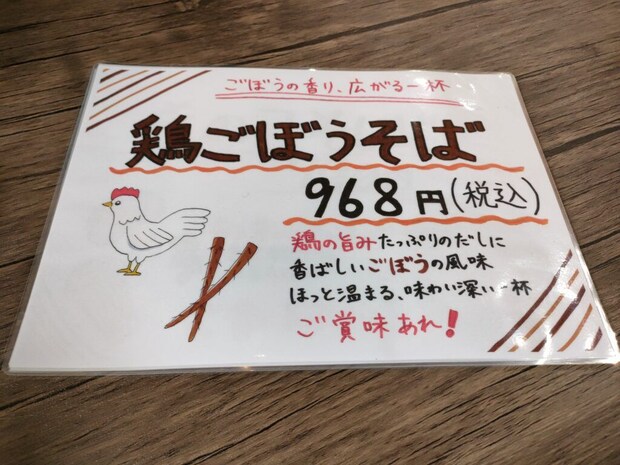 ごぼうの香り、広がる一杯
鶏ごぼうそば
968円(税込)
鶏の旨みたっぷりのだしに
香ばしいごぼうの風味
ほっと温まる、味わい深い一杯
ご賞味あれ!